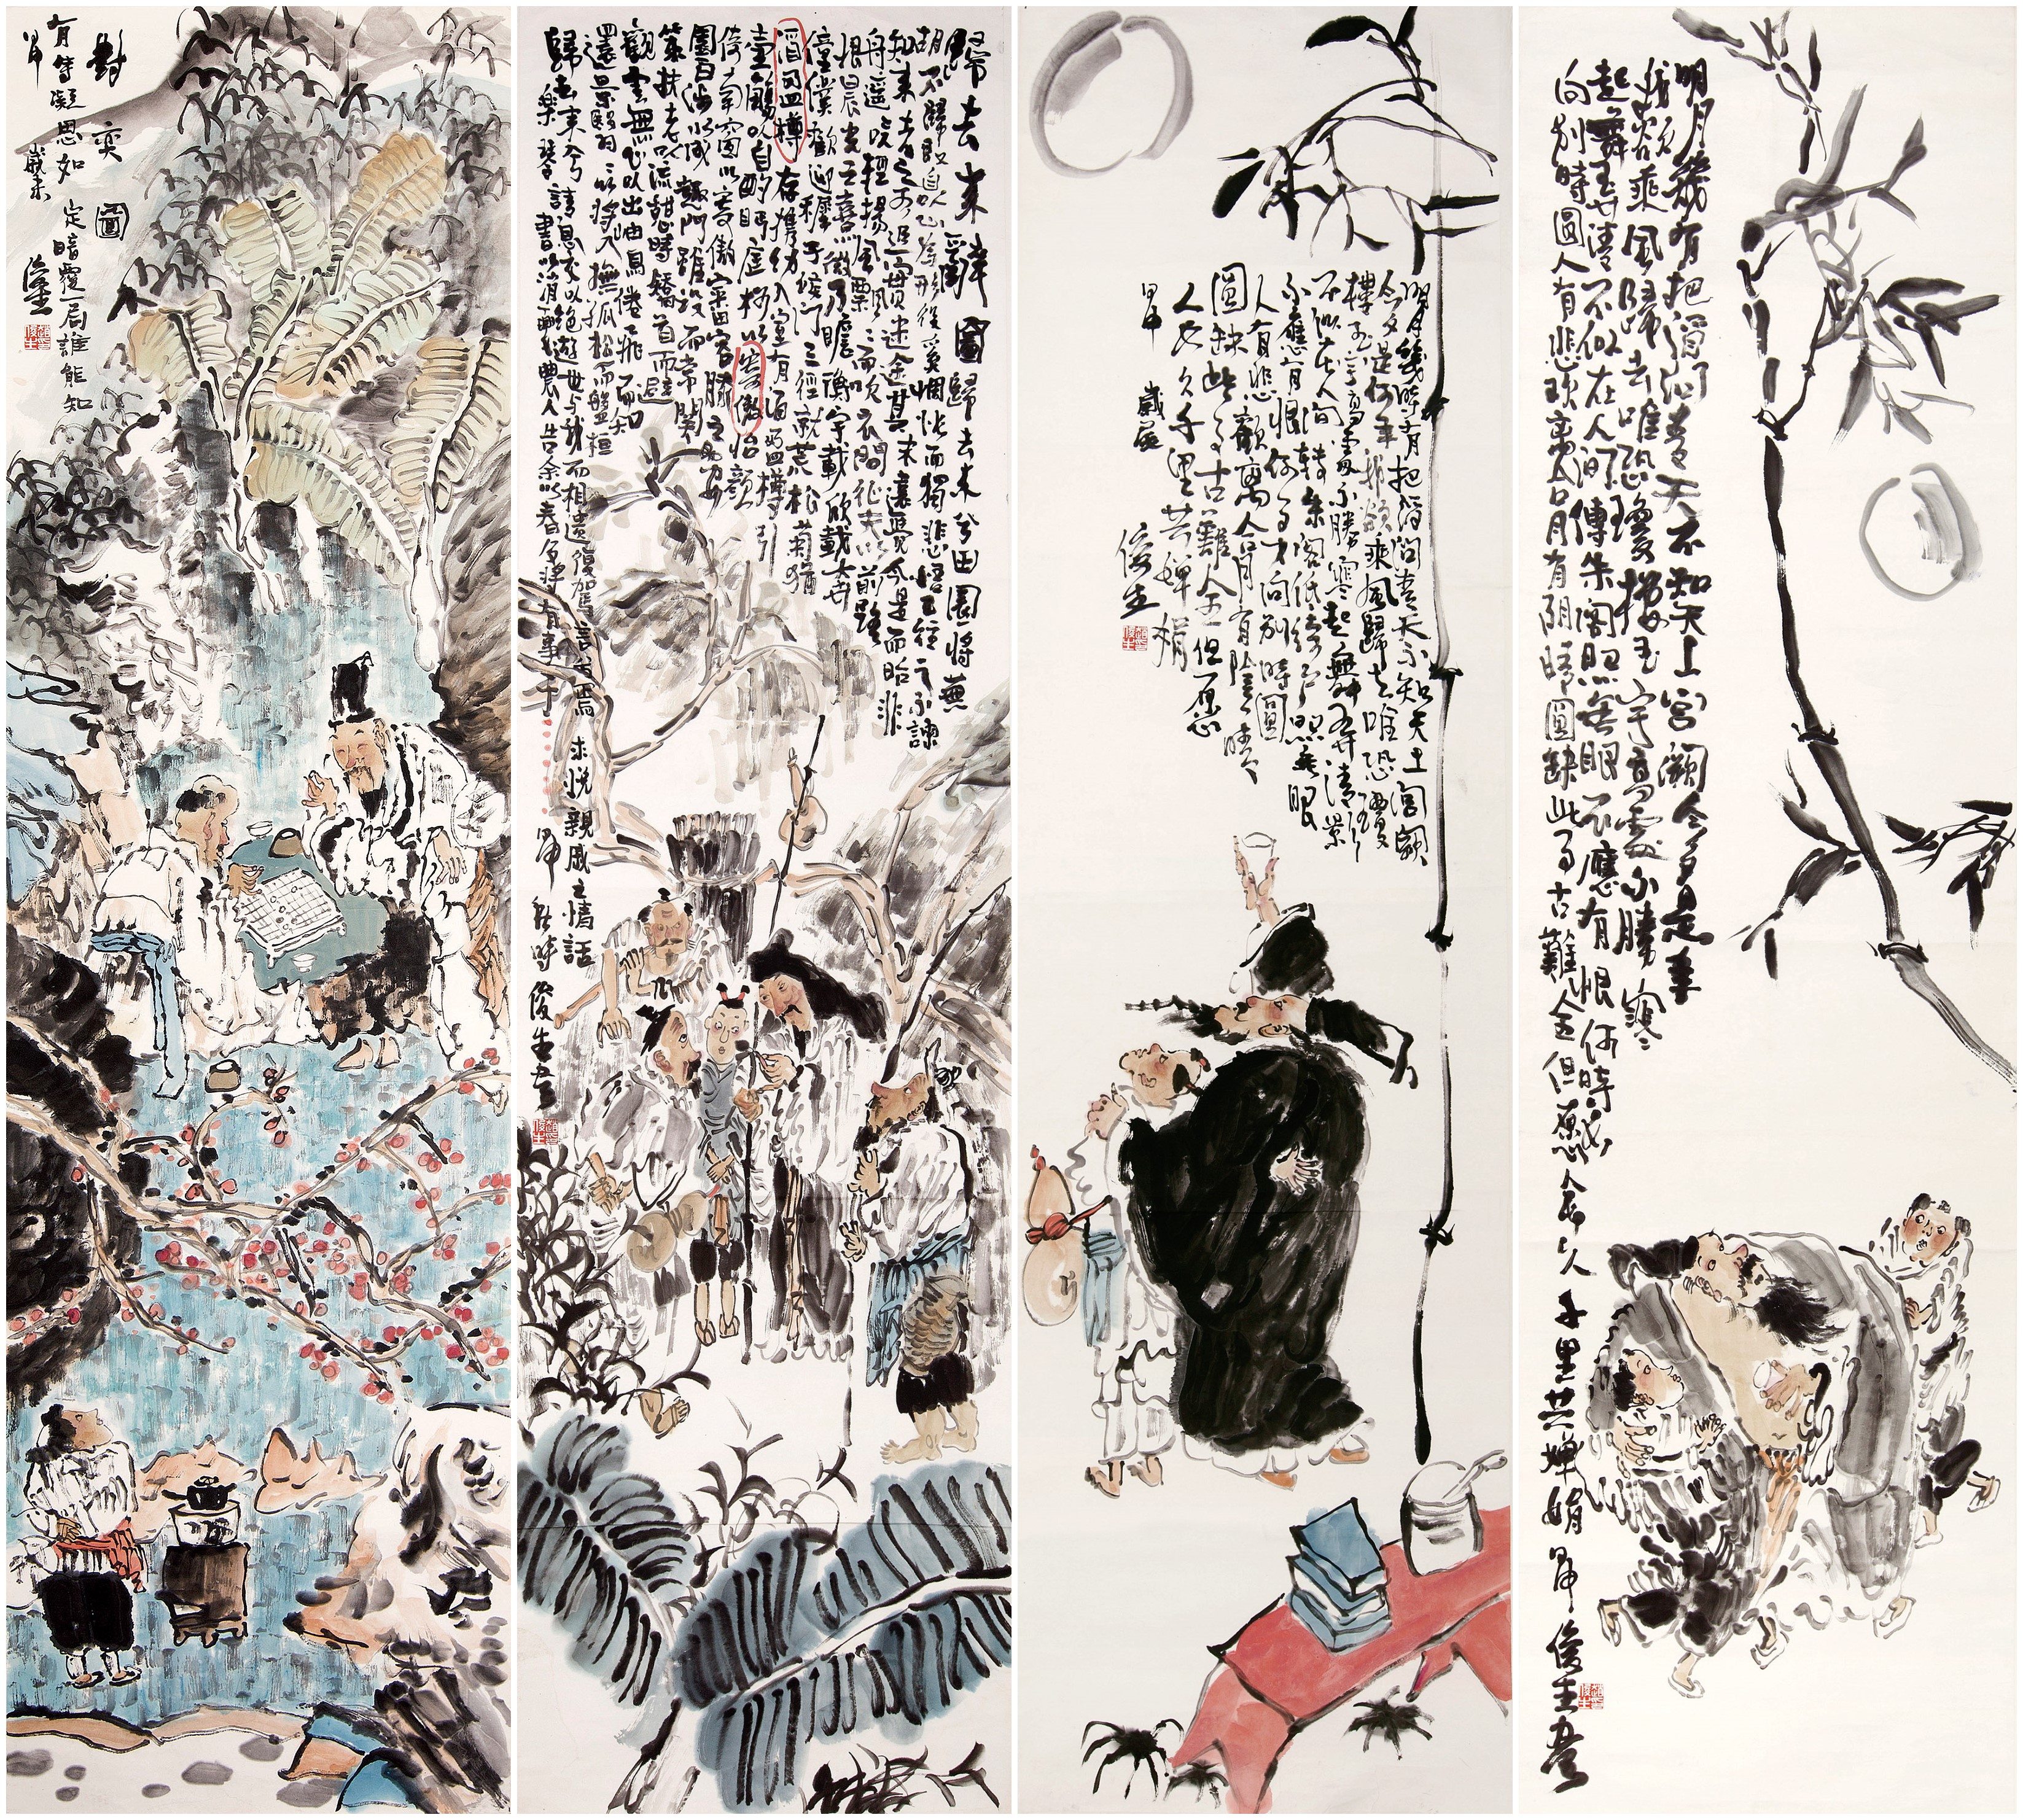 對奕圖
有時凝思如定暗覆一局誰能知
甲申 歲末 俊生
歸去來辭圖歸去來兮田園將蕪
胡不歸既自以心為形役奚惆悵而獨悲悟已往之不諫
知來者之可追實迷途其未遠覺今是而昨非
舟遙遙以輕颺風飄飄而吹衣問征夫以前路
恨晨光之熹微乃瞻衡宇載欣載奔
僮僕歡迎稚子候門三徑就荒松菊猶
酒盈樽存攜幼入室有酒盈樽引
壺觴以自酌眄庭柯以寄傲怡顏
倚南窗以寄傲審容膝之易安
園日涉以成趣門雖設而常關
策扶老以流憩時矯首而遐
觀雲無心以出岫鳥倦飛而知
還景翳翳以將入撫孤松而盤桓
歸去來兮請息交以絕遊世與我而相遺復駕言兮焉求悅親戚之情話
樂琴書以消憂農人告余以春及將有事于 甲申 秋時 俊生畫
明月幾時有把酒问青天不知天上宫闕
今夕是何年我欲乘風歸去唯恐瓊
樓玉宇高處不勝寒起舞弄清影
不似在人间轉朱閣低綺户照無眠
不應有恨何事才向別時圓
人有悲歡離合月有陰晴
圓缺此事古難全但愿
人長久千里共嬋娟
甲申 歲底 俊生
明月幾有把酒问青天不知天上宫闕今夕是年
我欲乘風歸去唯恐瓊樓玉宇高處不勝寒
起舞弄清不似在人间轉朱閣照無眠不應有恨何時
向別時圓人有悲歡離合月有阴晴圓缺此事古難全但愿人久千里共嬋娟 甲申 俊生畫